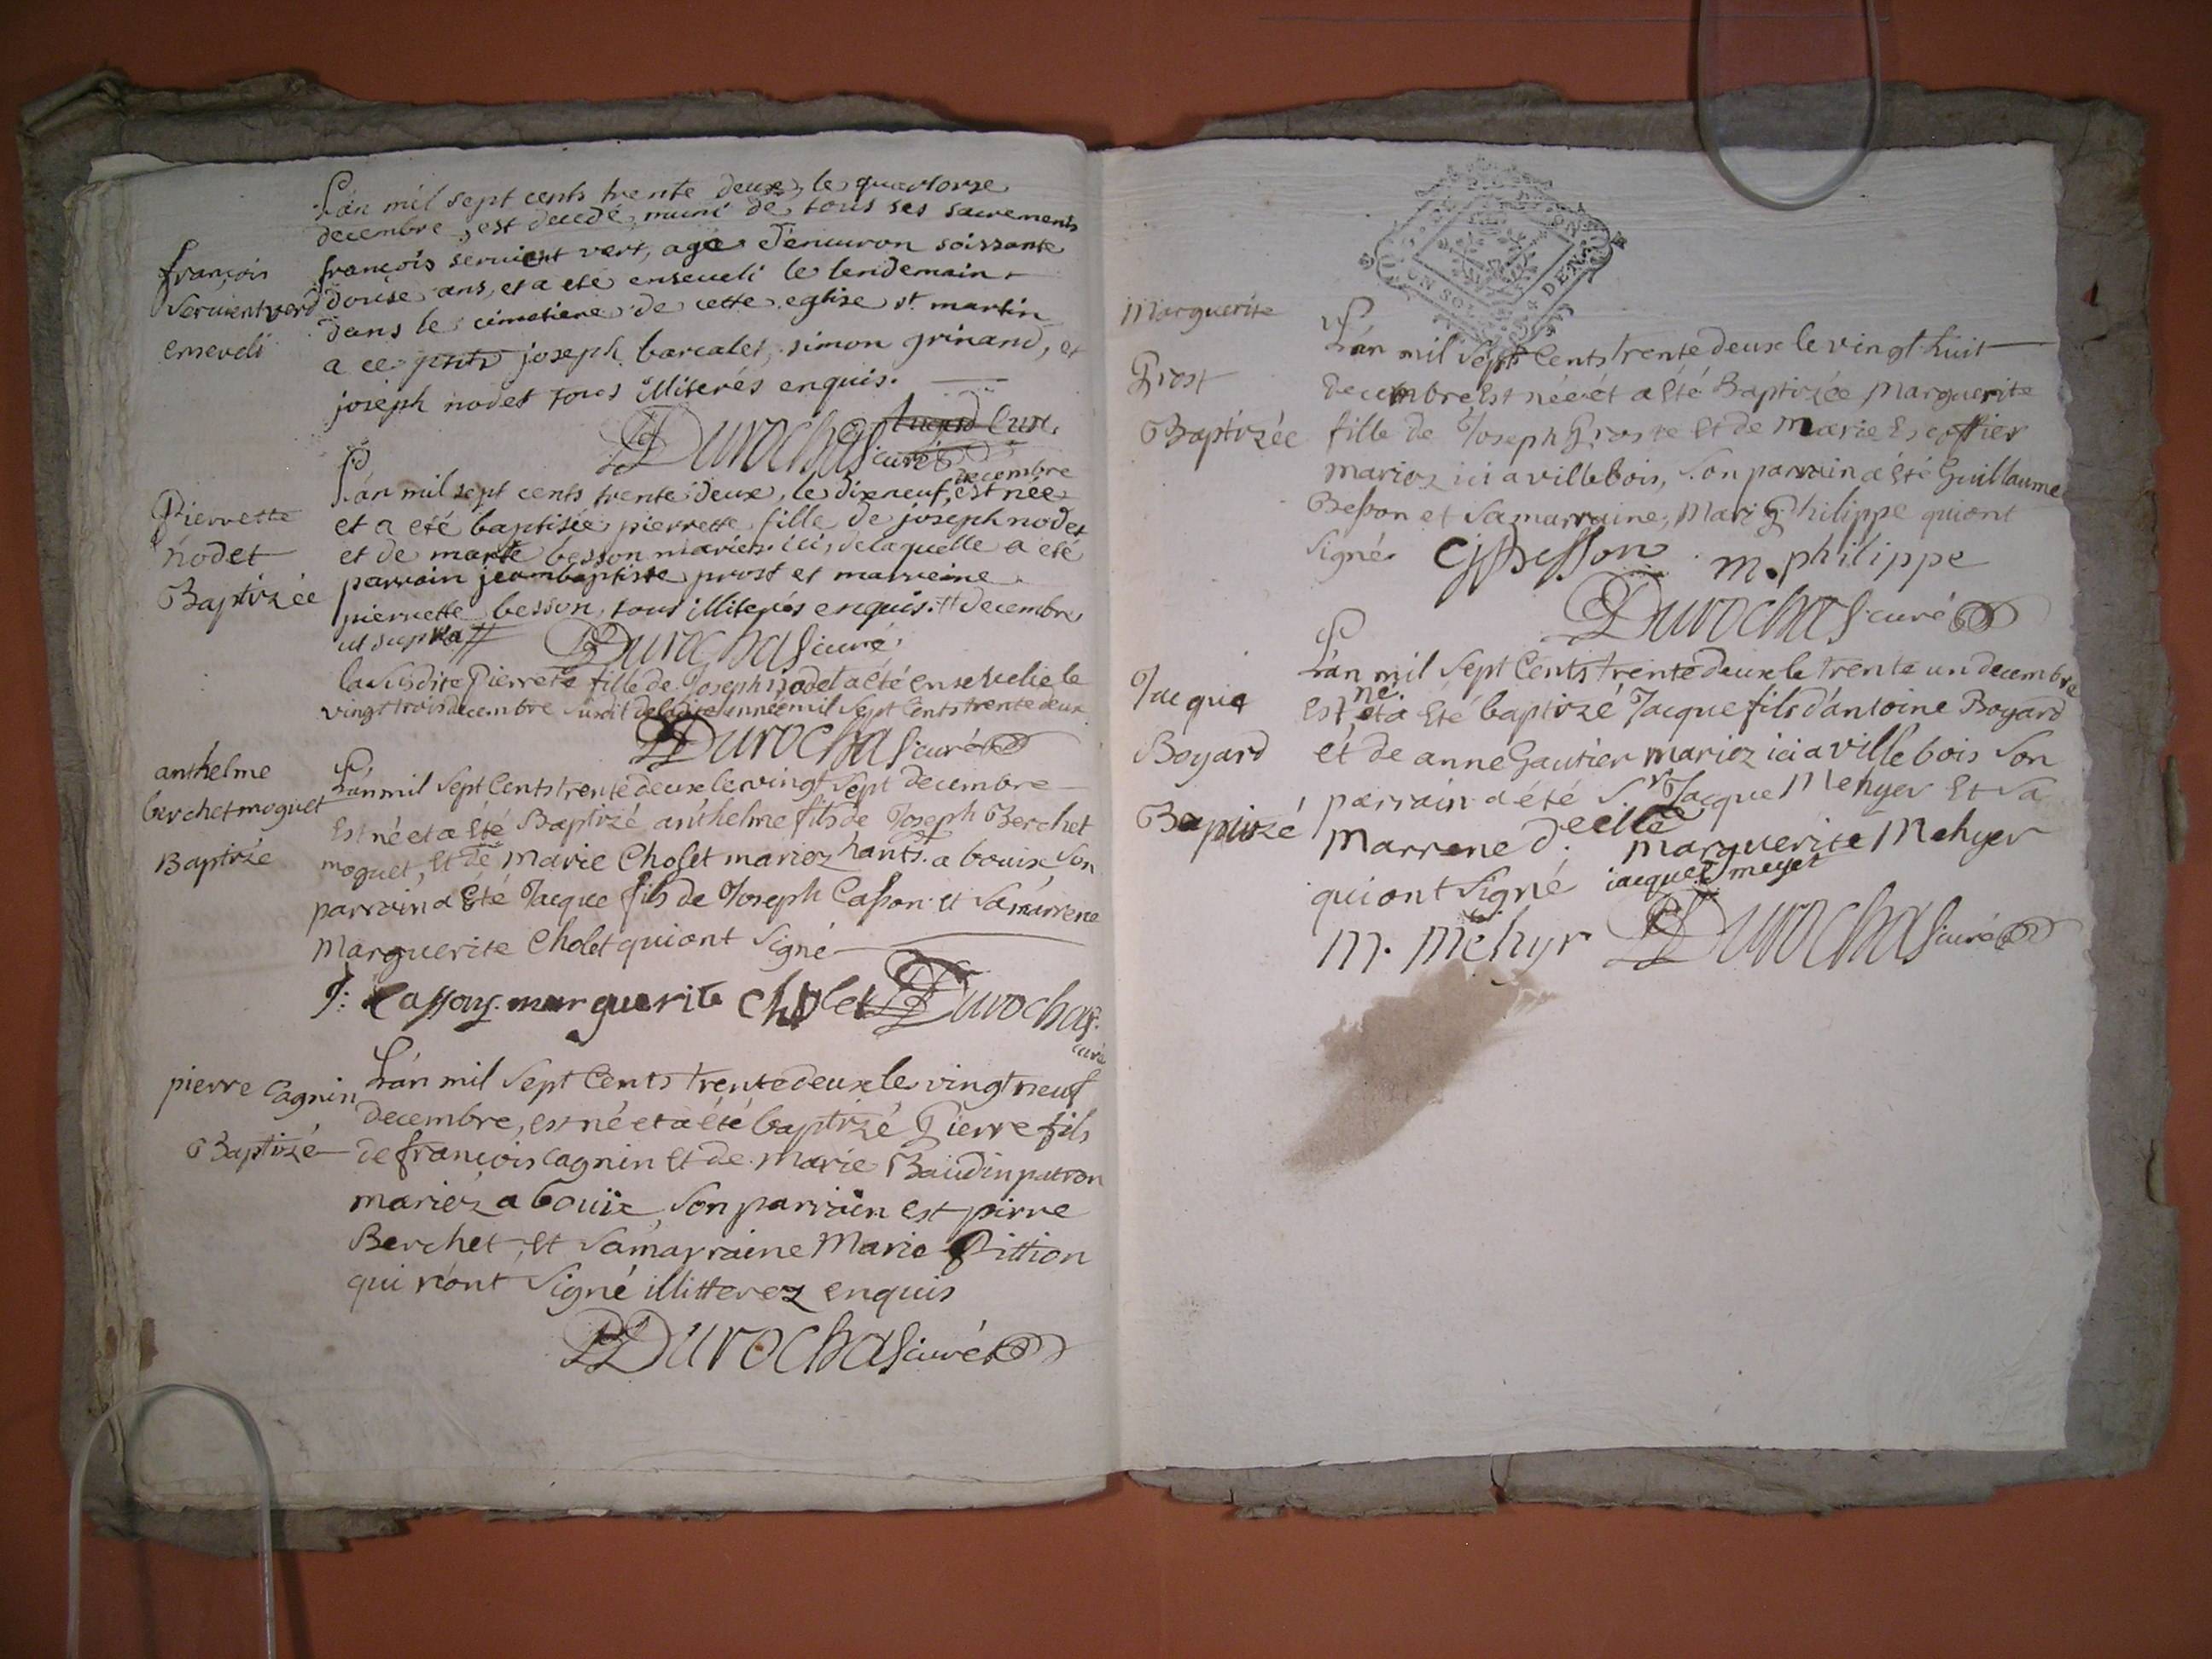 L'an mil sept cents trente deux, le quartorze
decembre, est decedé, muni de tous ses sacrements
françois servient vert, agé d'environ soissante
douse ans, et a eté enseveli le lendemain
dans le cimetiere de cette eglise st. martin
a ce pnts joseph barcalet, simon grinand, et
joseph nodet tous illiterés enquis.
françois
servientverd
enseveli
Durochas curé
L'an mil sept cents trente deux, le dixneuf, decembre est née
et a eté baptisée pierrette fille de joseph nodet
et de marte besson mariez ici, de laquelle a eté
parrain jeambaptiste prost et marreine
pierrette besson, tous illiterés enquis. # decembre
ut supra #
Durochas curé
Pierrette
nodet
Baptizée
la susdite Pierrete fille de Joseph nodet a été ensevelie le
vingt trois decembre susdit de ladite année mil sept Cents trente deux
Durochas curé
anthelme
berchet moguet
Baptizé
L'an mil sept Cents trente deux le vingt sept decembre
Est né et a Eté Baptizé anthelme fils de Joseph Berchet
moguet, Et de Marie Cholet mariez hants. a bouix, Son
parrain a Eté Jacque fils de Joseph Casson et Sa marrene
Marguerite Cholet qui ont Signé
J: Casson marguerite cholet Durochas
curé
pierre Cagnin
Baptizé
L'an mil Sept Cents trente deux le vingt neuf
decembre, est né et a été baptizé Pierre fils
de françois Cagnin Et de Marie Baudin patron
mariez a bouix, Son parrain est pirre
Berchet, Et Sa marraine Marie Pittion
qui n'ont Signé illitterez enquis
Durochas curé
Marguerite
Prost
Baptizée
L'an mil Sept Cents trente deux le vingt huit
decembre Est née et a Eté Baptizée Marguerite
fille de Joseph Proste Et de Marie Escoffier
mariez ici a villebois, Son parrain a Eté Guillaume
Besson et Sa marraine, Marie Philippe qui ont
Signé GBesson m. philippe
Durochas curé
Jacque
Bogard
Baptizé
L'an mil Sept Cents trente deux le trente un decembre
Est né et a Eté baptizé Jacque fils d'antoine Bogard
et de anne Gautier mariez ici a ville bois Son
parrain a été Sr. Jacque Mehyer Et Sa
Marrene d.elle Marguerite Mehyer
qui ont Signé jacque meyer
M. Mehyr Durochas curé